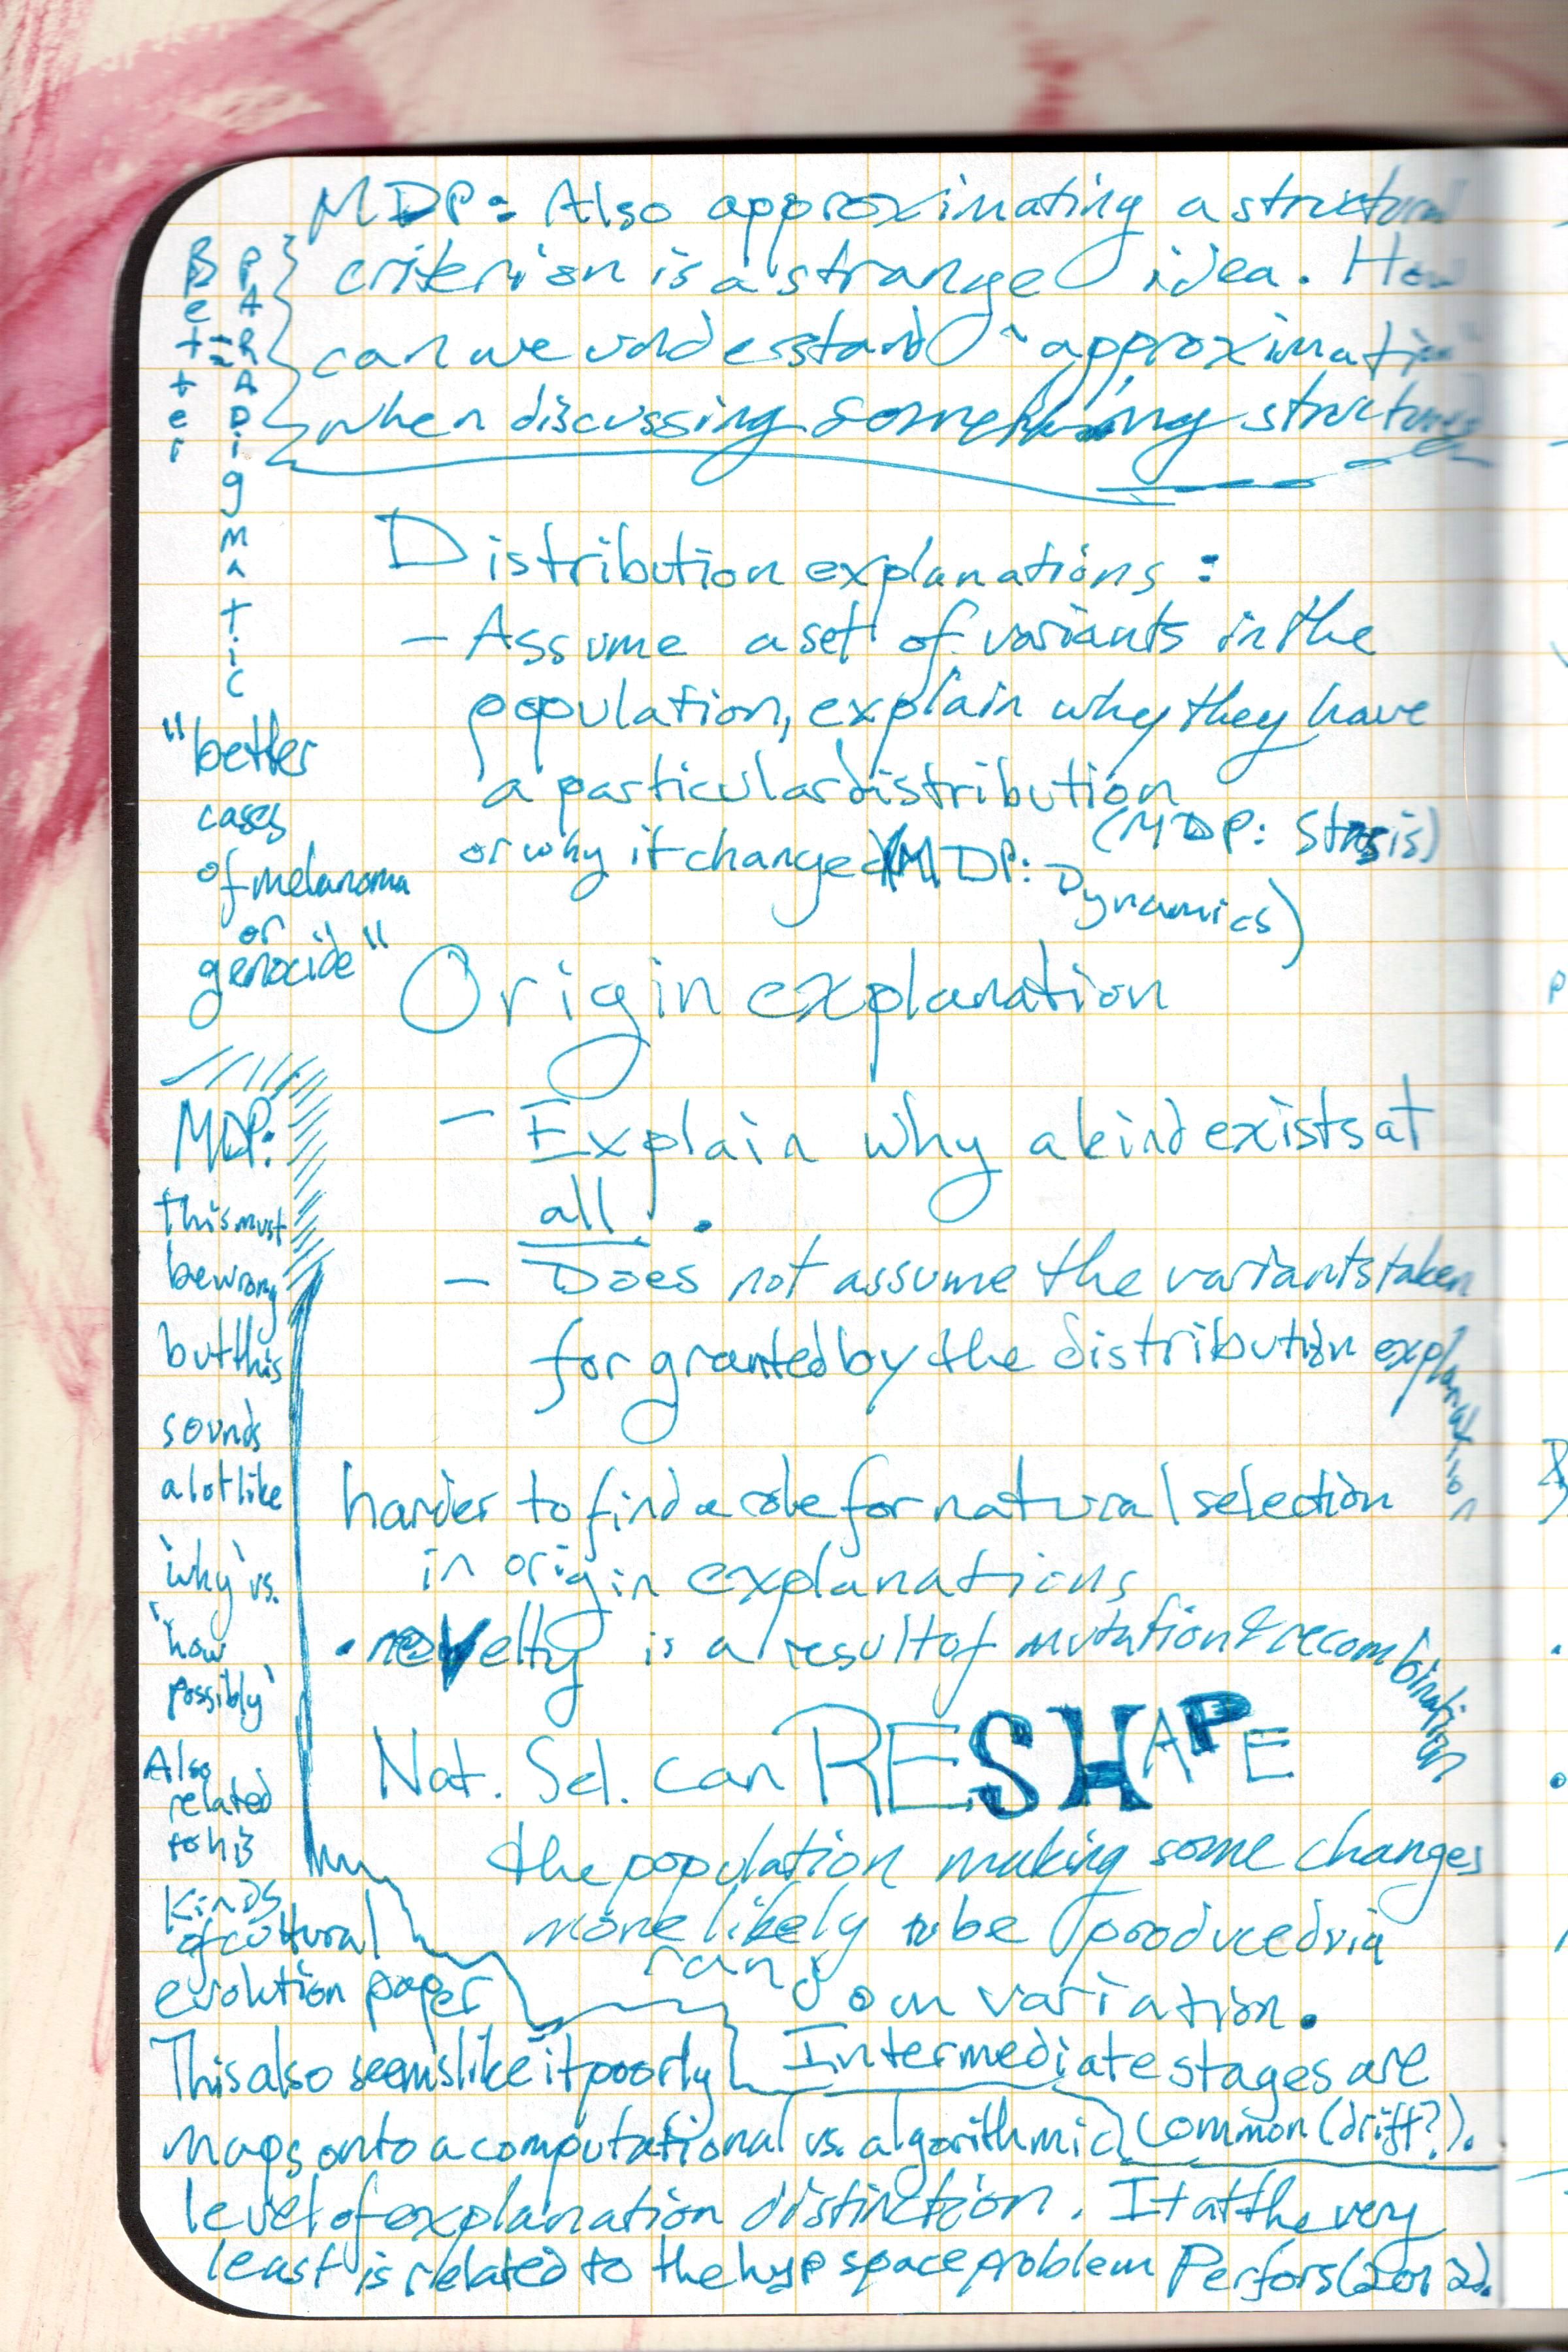 MDP: Also approximating a structural
criterion is a strange idea. How
can we understand "approximation"
when discussing something structured
Better = PARADigmatic
"better
cases
of melanoma
or
genocide"
Distribution explanations:
- Assume a set of variants in the
population, explain why they have
a particular distribution
(MDP: Stasis)
or why it changed (MDP: Dynamics)
Origin explanation
- Explain why a kind exists at
all.
- Does not assume the variants taken
for granted by the distribution explanation
harder to find a role for natural selection
in origin explanations
• novelty is a result of mutation & recombination
Nat. Sel. can RESHAPE
the population making some changes
more likely to be produced via
random variation.
Intermediate stages are
common (drift?).
MDP:
this must
be wrong
but this
sounds
a lot like
'why' vs.
'how
possibly'
Also
related
to his
kinds
of cultural
evolution paper
This also seems like it poorly
maps onto a computational vs. algorithmic
level of explanation distinction. It at the very
least is related to the hyp space problem Perfors (2012).